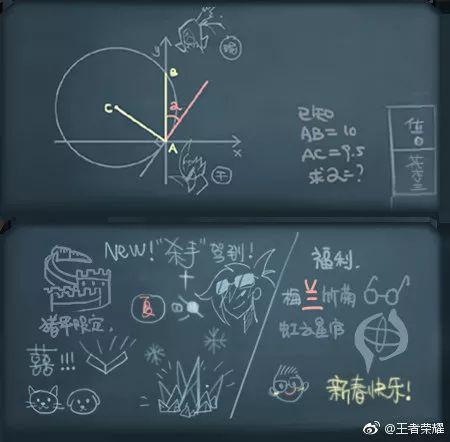 y
B
C
2
A
x
已知
AB=10
AC=9.5
求2=?
值日
NEW!"杀手"驾到!
+
夏
猪年限定.
囍!!!
福利.
梅兰竹菊
虹云星官
新春快乐!
@王者荣耀